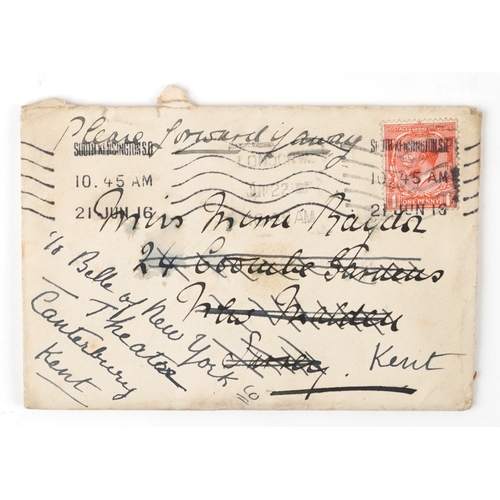 Please forward if away
SOUTH KENSINGTON S.O
10.45 AM
21 JUN 16
SOUTH KENSINGTON S.O
10.45 AM
21 JUN 16
LONDON
JUN 22
AM
ONE PENNY
Miss Mimi
24 Coombe Gardens
New Malden
Surrey
Kent
"18 Belle of New York Co
Theatre
Canterbury
Kent